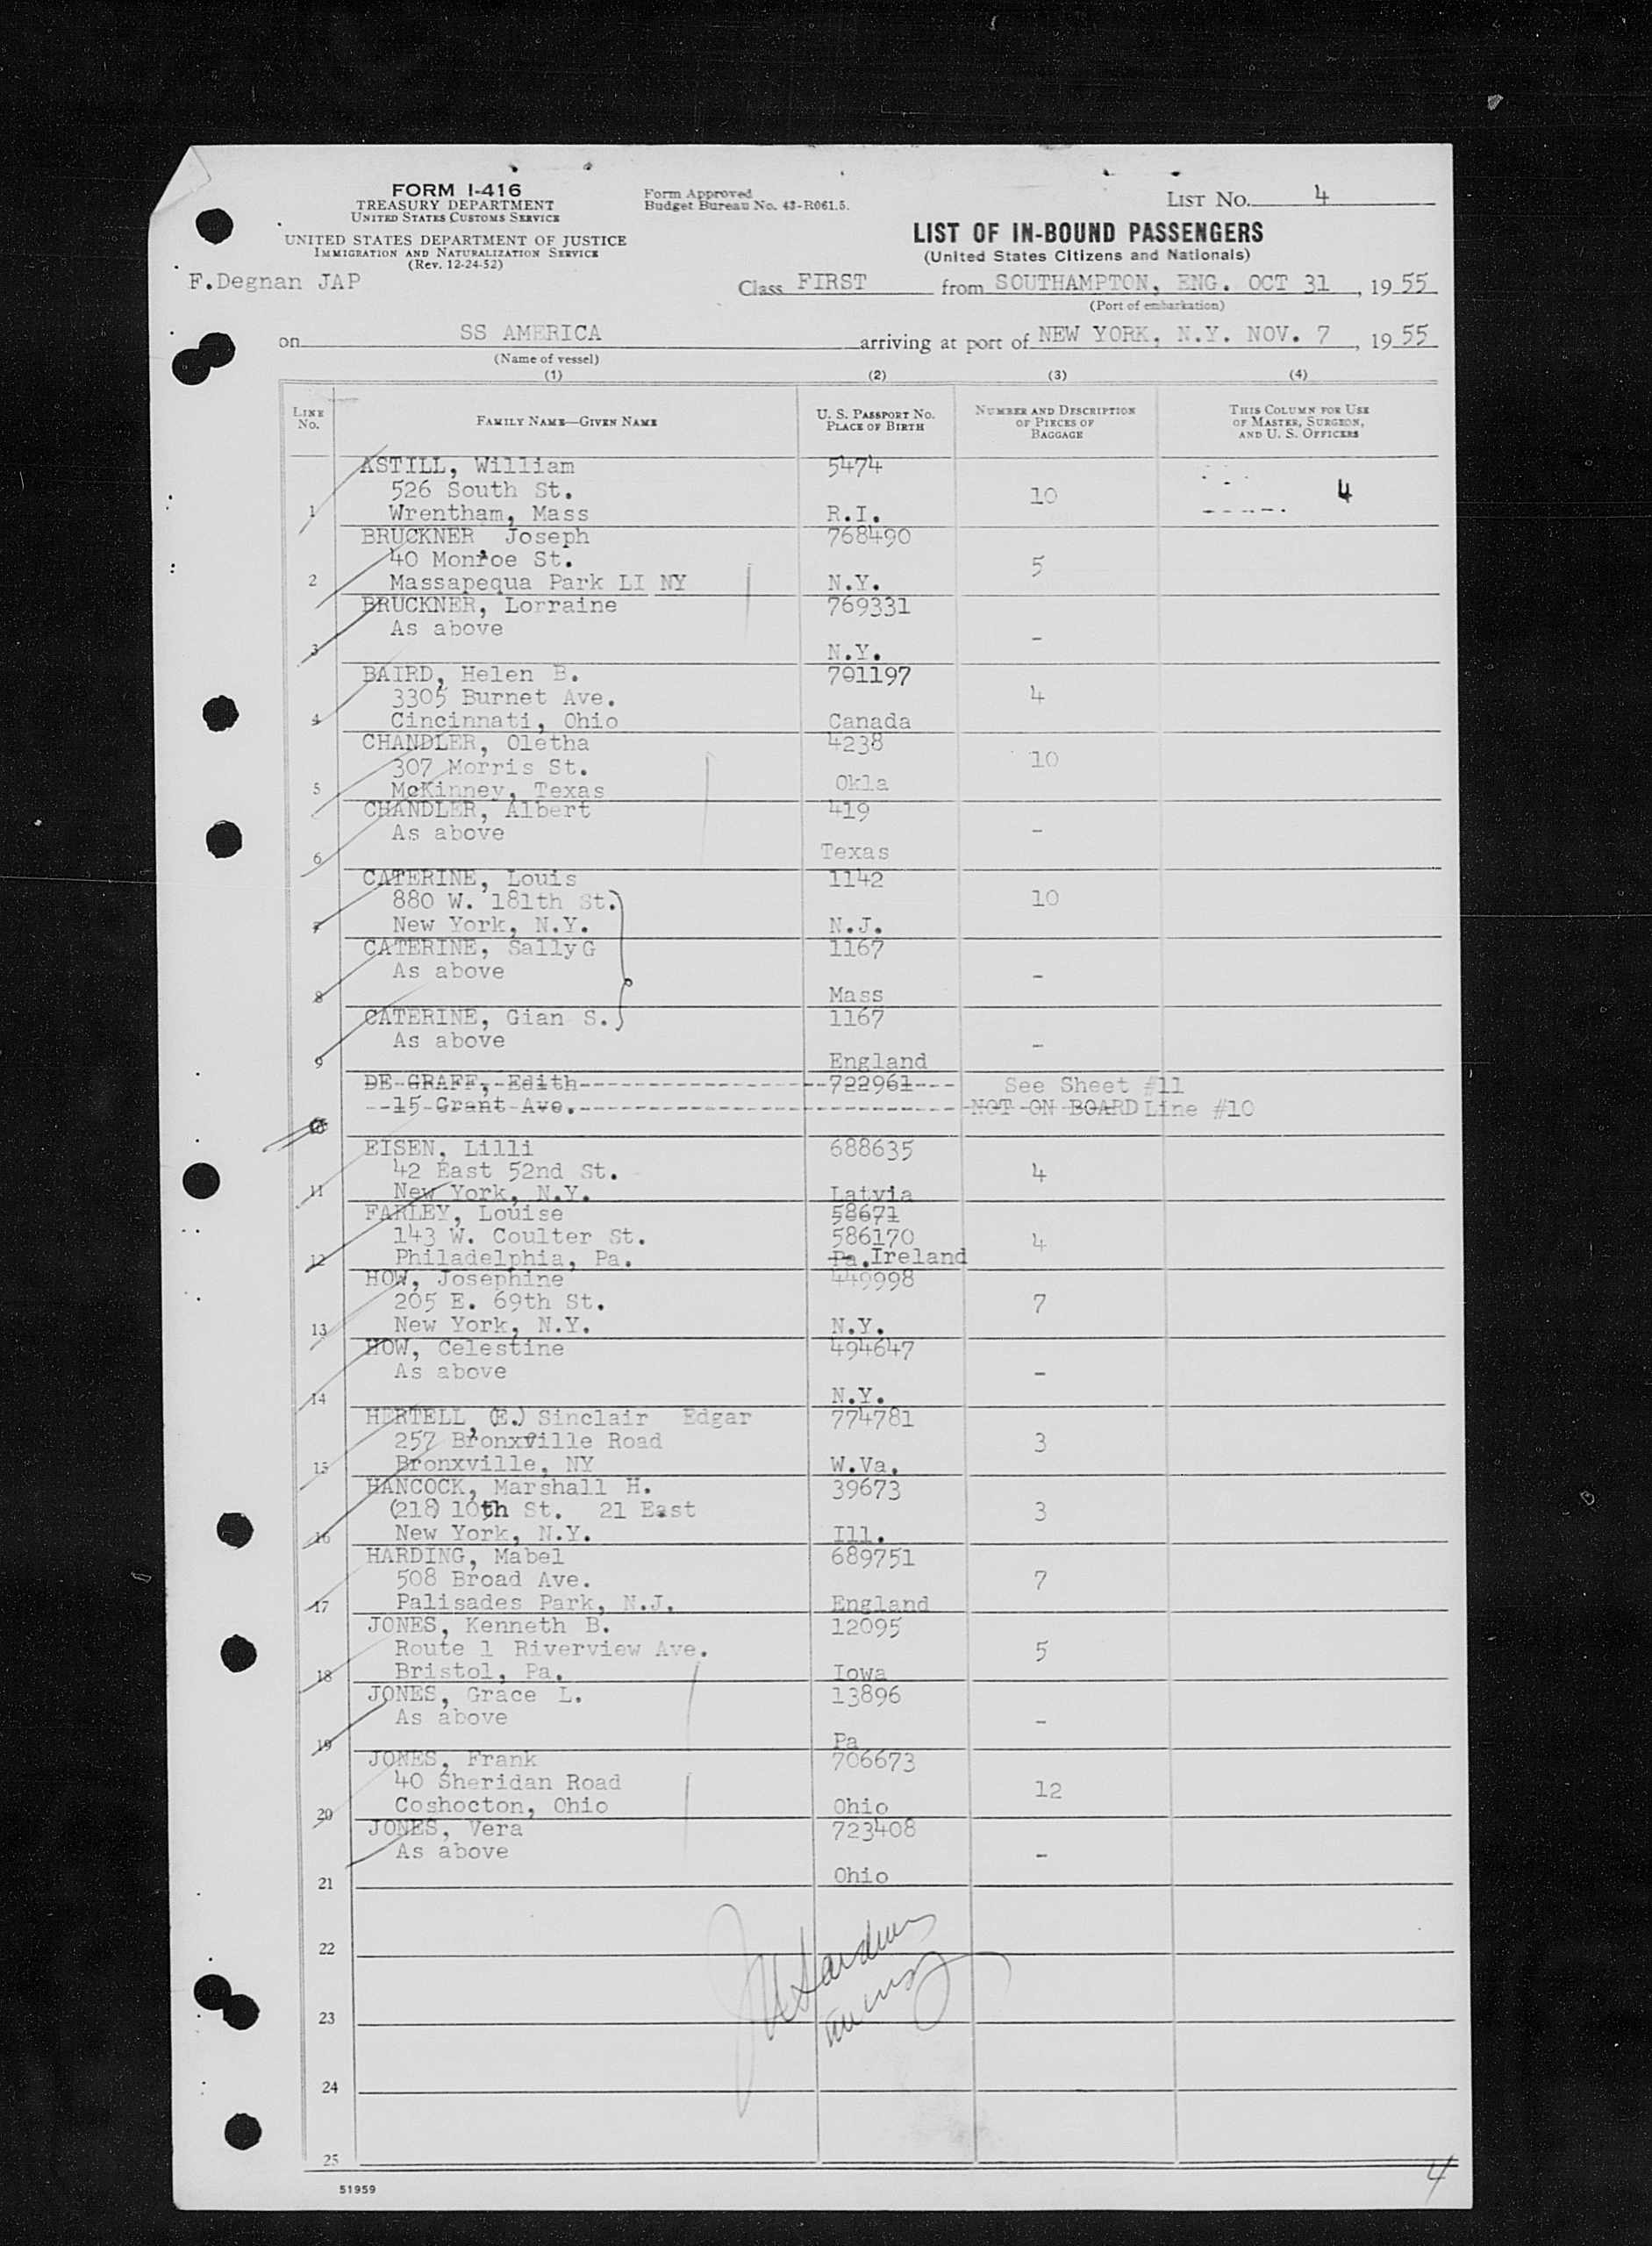 FORM I-416
TREASURY DEPARTMENT
UNITED STATES CUSTOMS SERVICE
UNITED STATES DEPARTMENT OF JUSTICE
IMMIGRATION AND NATURALIZATION SERVICE
(Rev. 12-24-52)
Form Approved
Budget Bureau No. 43-R061.5.
LIST No. 4
LIST OF IN-BOUND PASSENGERS
(United States Citizens and Nationals)
F.Degnan JAP
Class FIRST from SOUTHAMPTON, ENG. OCT 31, 1955
(Port of embarkation)
on SS AMERICA arriving at port of NEW YORK, N.Y. NOV. 7, 1955
(Name of vessel)
(1) (2) (3) (4)
LINE No. FAMILY NAME—GIVEN NAME U. S. PASSPORT NO. PLACE OF BIRTH NUMBER AND DESCRIPTION OF PIECES OF BAGGAGE THIS COLUMN FOR USE OF MASTER, SURGEON, AND U. S. OFFICERS
ASTILL, William 5474
526 South St. 10 4
1 Wrentham, Mass R.I.
BRUCKNER, Joseph 768490
40 Monroe St. 5
2 Massapequa Park LI NY N.Y.
BRUCKNER, Lorraine 769331
As above -
3 N.Y.
BAIRD, Helen B. 701197
3305 Burnet Ave. 4
4 Cincinnati, Ohio Canada
CHANDLER, Oletha 4238
307 Morris St. 10
5 McKinney, Texas Okla
CHANDLER, Albert 419
As above -
6 Texas
CATERINE, Louis 1142
880 W. 181th St. 10
7 New York, N.Y. N.J.
CATERINE, Sally G 1167
As above -
8 Mass
CATERINE, Gian S. 1167
As above -
9 England
DE GRAFF, Edith 722961 See Sheet #11
15 Grant Ave. NOT ON BOARD Line #10
EISEN, Lilli 688635
42 East 52nd St. 4
11 New York, N.Y. Latvia
FARLEY, Louise 58671
143 W. Coulter St. 586170 4
12 Philadelphia, Pa. Pa. Ireland
HOW, Josephine 449998
205 E. 69th St. 7
13 New York, N.Y. N.Y.
HOW, Celestine 494647
As above -
14 N.Y.
HERTELL, (E.) Sinclair Edgar 774781
257 Bronxville Road 3
15 Bronxville, NY W.Va.
HANCOCK, Marshall H. 39673
(218) 10th St. 21 East 3
16 New York, N.Y. Ill.
HARDING, Mabel 689751
508 Broad Ave. 7
17 Palisades Park, N.J. England
JONES, Kenneth B. 12095
Route 1 Riverview Ave. 5
18 Bristol, Pa. Iowa
JONES, Grace L. 13896
As above -
19 Pa
JONES, Frank 706673
40 Sheridan Road 12
20 Coshocton, Ohio Ohio
JONES, Vera 723408
As above -
21 Ohio
22
23
24
25
51959
4